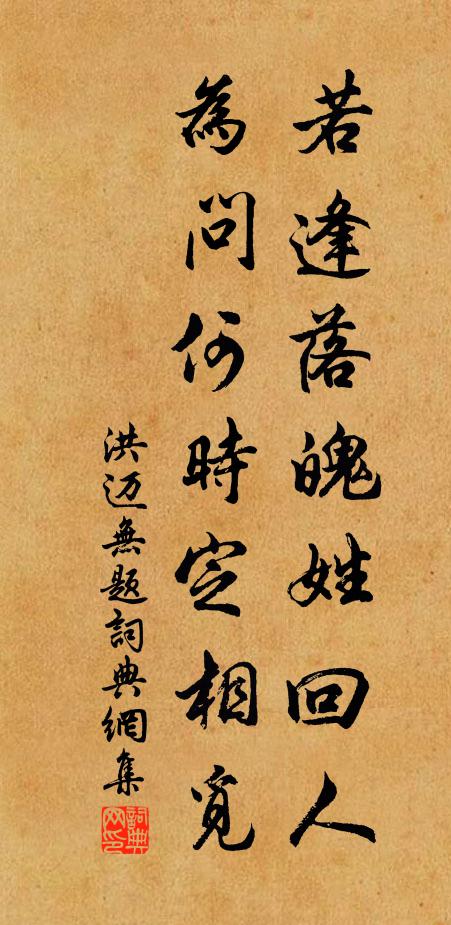 若逢落魄姓回人
為問何時定相覓
洪迈無题詞典網集
詞典网印